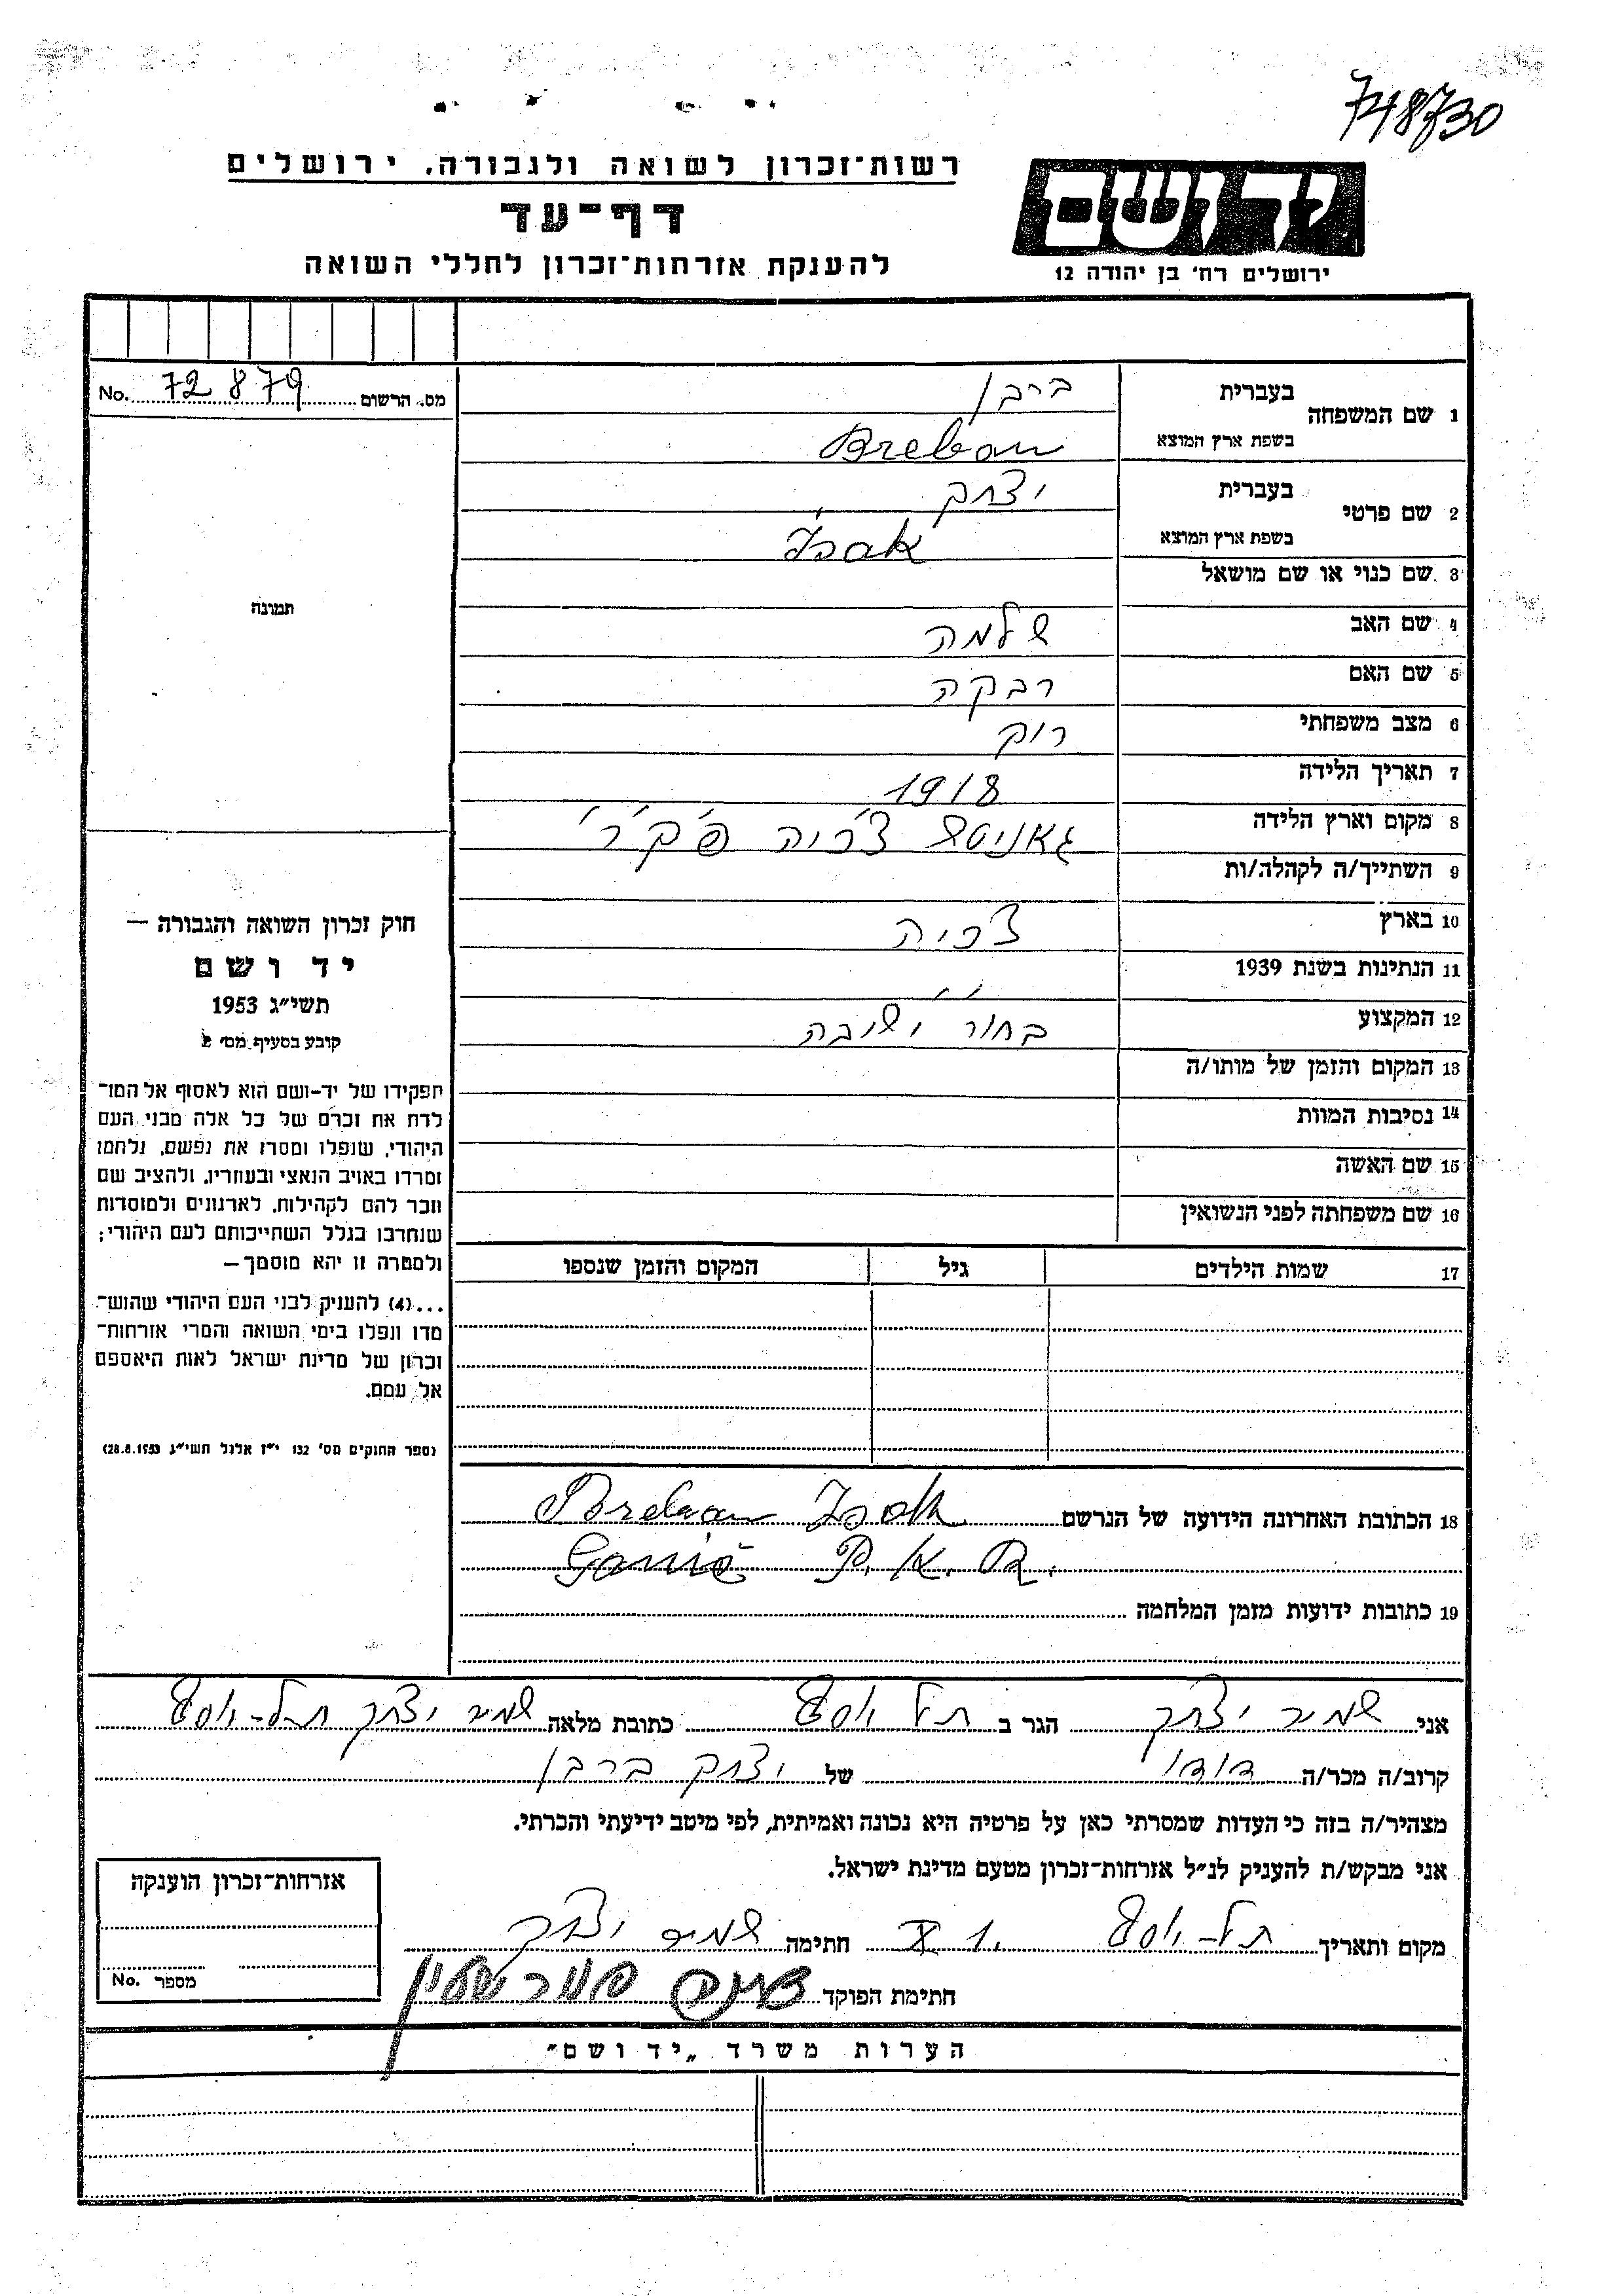 748730
רשות־זכרון לשואה ולגבורה, ירושלים
דף־עד
להענקת אזרחות־זכרון לחללי השואה
יד ושם
ירושלים רח' בן יהודה 12
מס. הרשום 72879 No.
1 שם המשפחה
בעברית ברבן
בשפת ארץ המוצא Breban
2 שם פרטי
בעברית יצחק
בשפת ארץ המוצא Isak
3 שם כנוי או שם מושאל
4 שם האב שלמה
5 שם האם רבקה
6 מצב משפחתי רוק
7 תאריך הלידה 1918
8 מקום וארץ הלידה גאניטש צ'כיה פ'ק'ר'
9 השתייך/ה לקהלה/ות
10 בארץ צ'כיה
11 הנתינות בשנת 1939 ״
12 המקצוע בחור ישיבה
13 המקום והזמן של מותו/ה
14 נסיבות המוות
15 שם האשה
16 שם משפחתה לפני הנשואין
17 שמות הילדים גיל המקום והזמן שנספו
תמונה
חוק זכרון השואה והגבורה —
יד ושם
תשי״ג 1953
קובע בסעיף מס' 2
תפקידו של יד-ושם הוא לאסוף אל המו־
לדת את זכרם של כל אלה מבני העם
היהודי, שנפלו ומסרו את נפשם, נלחמו
ומרדו באויב הנאצי ובעוזריו, ולהציב שם
וזכר להם לקהילות, לארגונים ולמוסדות
שנחרבו בגלל השתייכותם לעם היהודי;
ולמטרה זו יהא מוסמך —
...(4) להעניק לבני העם היהודי שהוש־
מדו ונפלו בימי השואה והמרי אזרחות־
זכרון של מדינת ישראל לאות היאספם
אל עמם.
(ספר החוקים מס' 132 י״ז אלול תשי״ג 28.8.1953)
18 הכתובת האחרונה הידועה של הנרשם Breban Isak
Ganič P.K.R.
19 כתובות ידועות מזמן המלחמה
אני שמיר יצחק הגר ב תל יוסף כתובת מלאה שמיר יצחק תל-יוסף
קרוב/ה מכר/ה דודו של יצחק ברבן
מצהיר/ה בזה כי העדות שמסרתי כאן על פרטיה היא נכונה ואמיתית, לפי מיטב ידיעתי והכרתי.
אני מבקש/ת להעניק לנ״ל אזרחות־זכרון מטעם מדינת ישראל.
מקום ותאריך תל-יוסף 1. X חתימה שמיר יצחק
חתימת הפוקד
אזרחות־זכרון הוענקה
מספר No.
הערות משרד „יד ושם״